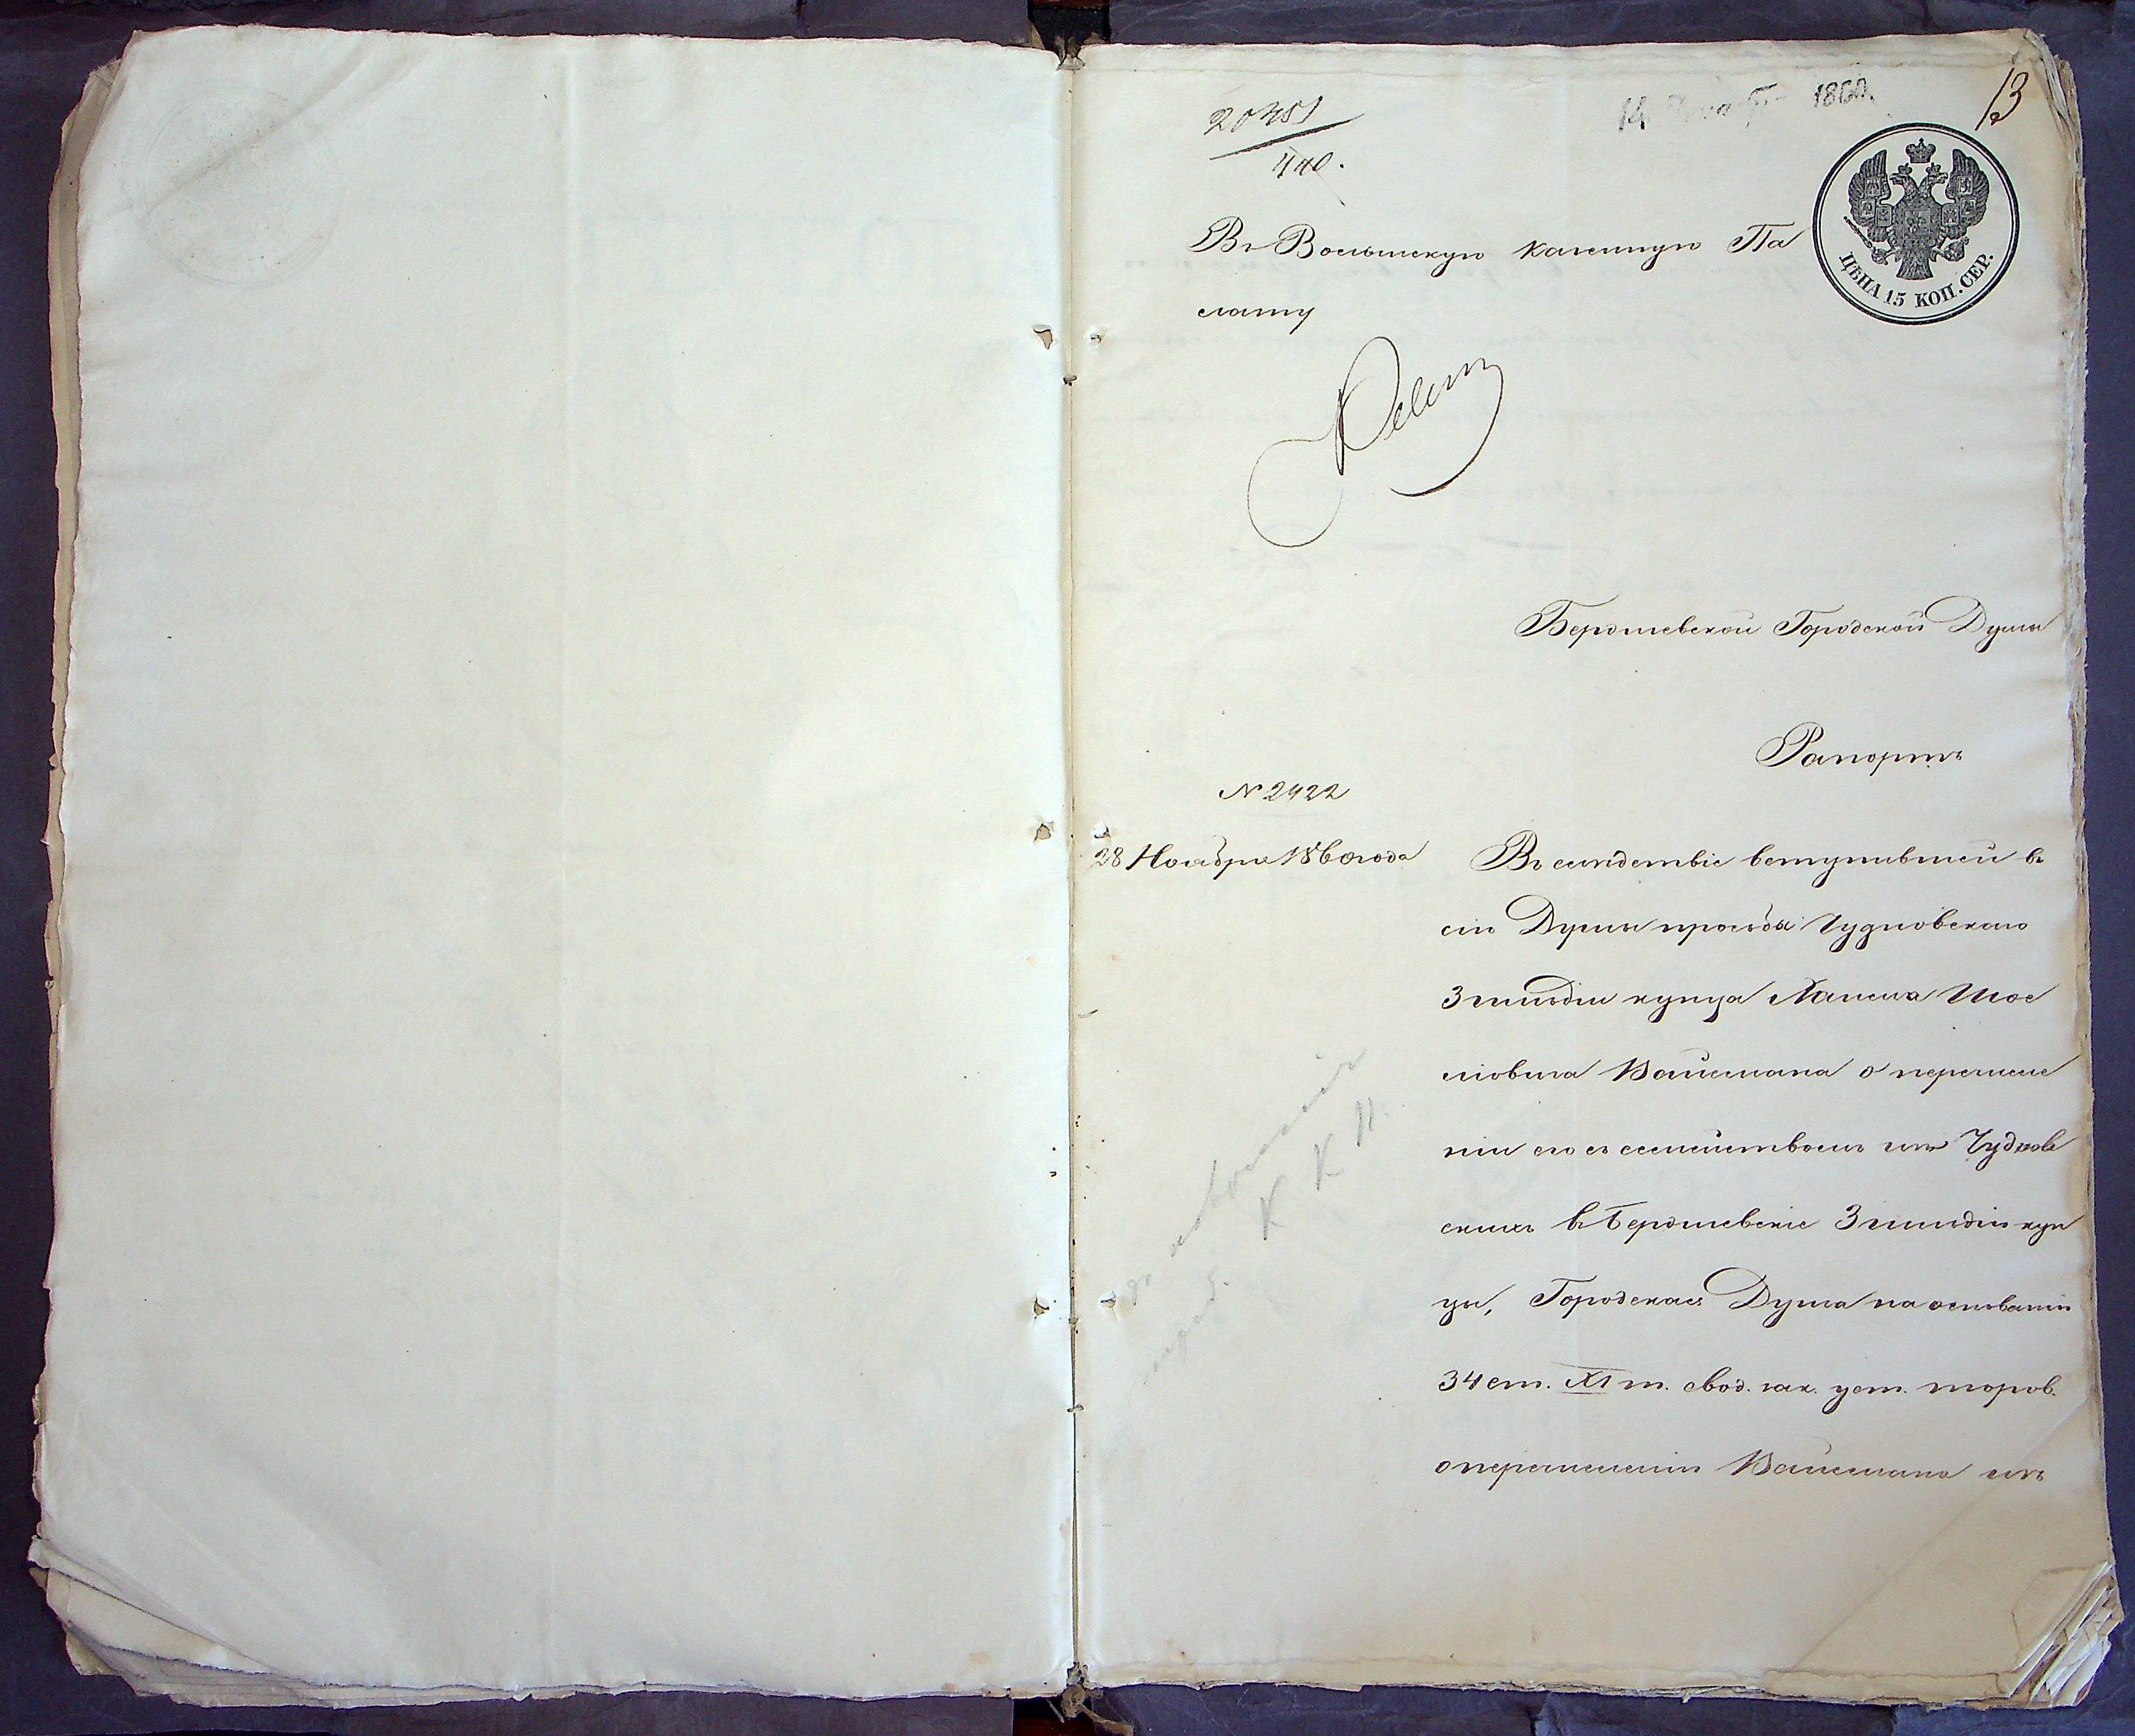 13
1860.
440.
ЦѢНА 15 КОП. СЕР.
Въ Волынскую казенную Па
лату
Бердичевской Городской Думы
Рапортъ
№ 2422
28 Ноября 1860 года
Въ слѣдствіе вступившей въ
сію Думу просьбы Чудновскаго
3 гильдіи купца
Вайсмана о перечисле
ніи его съ семействомъ изъ Чуднов
скихъ въ Бердичевскіе 3 гильдіи куп
цы, Городская Дума на основаніи
34 ст. XI т. свод. зак. уст. торгов.
о перечисленіи Вайсмана изъ